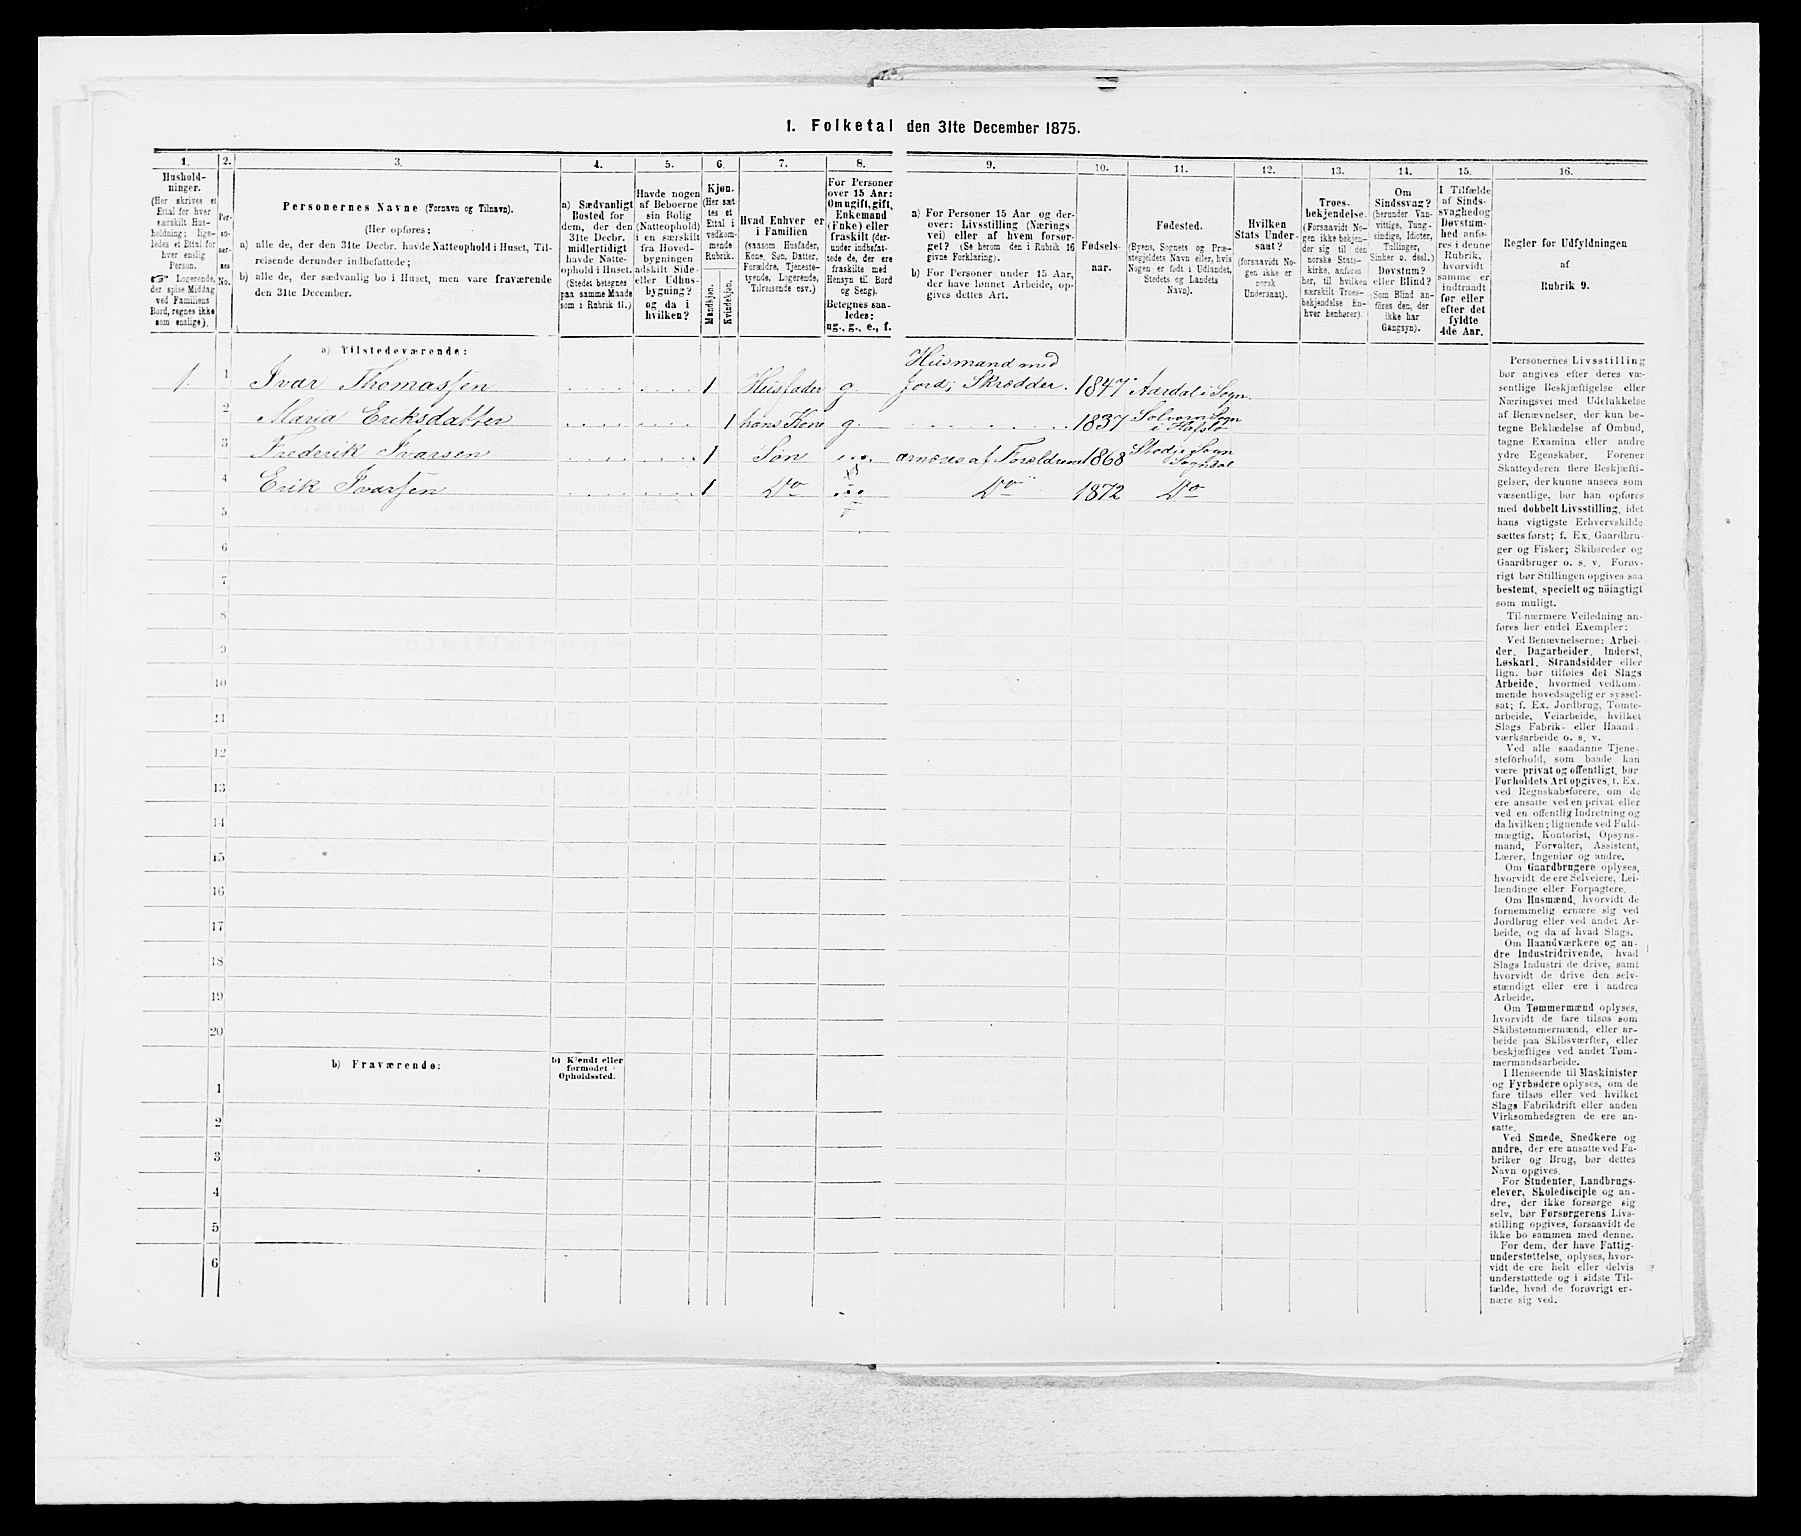 1. Folketal den 31te December 1875.
1.
2.
3.
4.
5.
6.
7.
8.
9.
10.
11.
12.
13.
14.
15.
16.
Hushold-
ninger.
(Her skrives et
Ettal for hver
særskilt Hus-
holdning; lige-
ledes et Ettal for
hver enslig
Person.
☞ Logerende,
der spise Middag
ved Familiens
Bord, regnes ikke
som enslige).
Per-
so-
ner-
nes
No.
Personernes Navne (Fornavn og Tilnavn).
(Her opføres:
a) alle de, der den 31te Decbr. havde Natteophold i Huset, Til-
reisende derunder indbefattede;
b) alle de, der sædvanlig bo i Huset, men vare fraværende
den 31te December.
a) Sædvanligt
Bosted for
dem, der den
31te Decbr.
midlertidigt
havde Natte-
ophold i Huset.
(Stedet betegnes
paa samme Maade
som i Rubrik 11.)
Havde nogen
af Beboerne
sin Bolig
(Natteophold)
i en særskilt
fra Hoved-
bygningen
adskilt Side-
eller Udhus-
bygning?
og da i
hvilken?
Kjøn.
(Her sæt-
tes et
Ettal i
vedkom-
mende
Rubrik.
Mandkjøn.
Kvindekjøn.
Hvad Enhver er
i Familien
(saasom Husfader,
Kone, Søn, Datter,
Forældre, Tjeneste-
tyende, Logerende,
Tilreisende osv.)
For Personer
over 15 Aar:
Om ugift, gift,
Enkemand
(Enke) eller
fraskilt (der-
under indbefat-
tede de, der ere
fraskilte med
Hensyn til Bord
og Seng).
Betegnes saa-
ledes:
ug., g., e., f.
a) For Personer 15 Aar og der-
over: Livsstilling (Nærings
vei) eller af hvem forsør-
get? (Se herom den i Rubrik 16
givne Forklaring).
b) For Personer under 15 Aar,
der have lønnet Arbeide, op-
gives dettes Art.
Fødsels-
aar.
Fødested.
(Byens, Sognets og Præ-
stegjeldets Navn eller, hvis
Nogen er født i Udlandet,
Stedets og Landets
Navn).
Hvilken
Stats Under-
saat?
(forsaavidt No-
gen ikke er
norsk
Undersaat).
Troes-
bekjendelse.
(Forsaavidt No-
gen ikke bekjen-
der sig til den
norske Stats-
kirke, anføres
her, til hvilken
særskilt Troes-
bekjendelse En-
hver henhører).
Om
Sindssvag?
(herunder Van-
vittige, Tung-
sindige, Idioter,
Tullinger,
Sinker o. desl.)
Døvstum?
eller Blind?
(Som Blind an-
føres den, der
ikke har
Gangsyn).
I Tilfælde
af Sinds-
svaghed og
Døvstum-
hed anfø-
res i denne
Rubrik,
hvorvidt
samme er
indtraadt
før eller
efter det
fyldte
4de Aar.
Regler før Udfyldningen
af
Rubrik 9.
a) Tilstedeværende:
1. 1 Ivar Thomassen 1 Husfader g. Husmand med
Jord; Skrædder. 1847 Aardal i Sogn.
2 Maria Eriksdatter 1 hans Kone g. 1837 Solvorn Sogn
i Hafslo
3 Frederik Ivarsen 1 Søn ernæres af Forældrene 1868 Stedje Sogn
Sogndal
4 Erik Ivarsen 1 Do Do 1872 Do
5
6
7
8
9
10
11
12
13
14
15
16
17
18
19
20
b) Fraværende:
b) Kjendt eller
formodet
Opholdssted.
1
2
3
4
5
6
Personernes Livsstilling
bør angives efter deres væ-
sentlige Beskjæftigelse eller
Næringsvei med Udelukkelse
af Benævnelser, der kun be-
tegne Beklædelse af Ombud,
tagne Examina eller andre
ydre Egenskaber. Forener
Skatteyderen flere Beskjæfti-
gelser, der kunne ansees som
væsentlige, bør han opføres
med dobbelt Livsstilling, idet
hans vigtigste Erhvervskilde
sættes først; f. Ex. Gaardbru-
ger og Fisker; Skibsreder og
Gaardbruger o. s. v. Forøv-
rigt bør Stillingen opgives saa
bestemt, specielt og nöiagtigt
som muligt.
Til nærmere Veiledning an-
føres her endel Exempler:
Ved Benævnelserne: Arbei-
der, Dagarbeider, Inderst,
Løskarl, Strandsidder eller
lign. bør tilføies det Slags
Arbeide, hvormed vedkom-
mende hovedsagelig er syssel-
sat; f. Ex. Jordbrug, Tomte-
arbeide, Veiarbeide, hvilket
Slags Fabrik- eller Haand-
værksarbeide o. s. v.
Ved alle saadanne Tjene-
steforhold, som baade kan
være privat og offentligt, bør
Forholdets Art opgives, f. Ex.
ved Regnskabsførere, om de
ere ansatte ved en privat eller
ved en offentlig Indretning og
da hvilken; lignende ved Fuld-
mægtig, Kontorist, Opsyns-
mand, Forvalter, Assistent,
Lærer, Ingeniør og andre.
Om Gaardbrugere oplyses,
hvorvidt de ere Selveiere, Lei-
lændinge eller Forpagtere.
Om Husmænd, hvorvidt de
fornemmelig ernære sig ved
Jordbrug eller ved andet Ar-
beide, og da af hvad Slags.
Om Haandværkere og an-
dre Industridrivende, hvad
Slags Industri de drive, samt
hvorvidt de drive den selv-
stændigt eller ere i andres
Arbeide.
Om Tømmermænd oplyses,
hvorvidt de fare tilsøs som
Skibstømmermænd, eller ar-
beide paa Skibsværfter, eller
beskjæftiges ved andet Tøm-
mermandsarbeide.
I Henseende til Maskinister
og Fyrbødere oplyses, om de
fare tilsøs eller ved hvilket
Slags Fabrikdrift eller anden
Virksomhedsgren de ere an-
satte.
Ved Smede, Snedkere og
andre, der ere ansatte ved Fa-
briker og Brug, bør dettes
Navn opgives.
For Studenter, Landbrugs-
elever, Skoledisciple og an-
dre, der ikke forsørge sig
selv, bør Forsørgerens Livs-
stilling opgives, forsaavidt de
ikke bo sammen med denne.
For dem, der have Fattig-
understøttelse, oplyses, hvor-
vidt de ere helt eller delvis
understøttede og i sidste Til-
fælde, hvad de forøvrigt er-
nære sig ved.